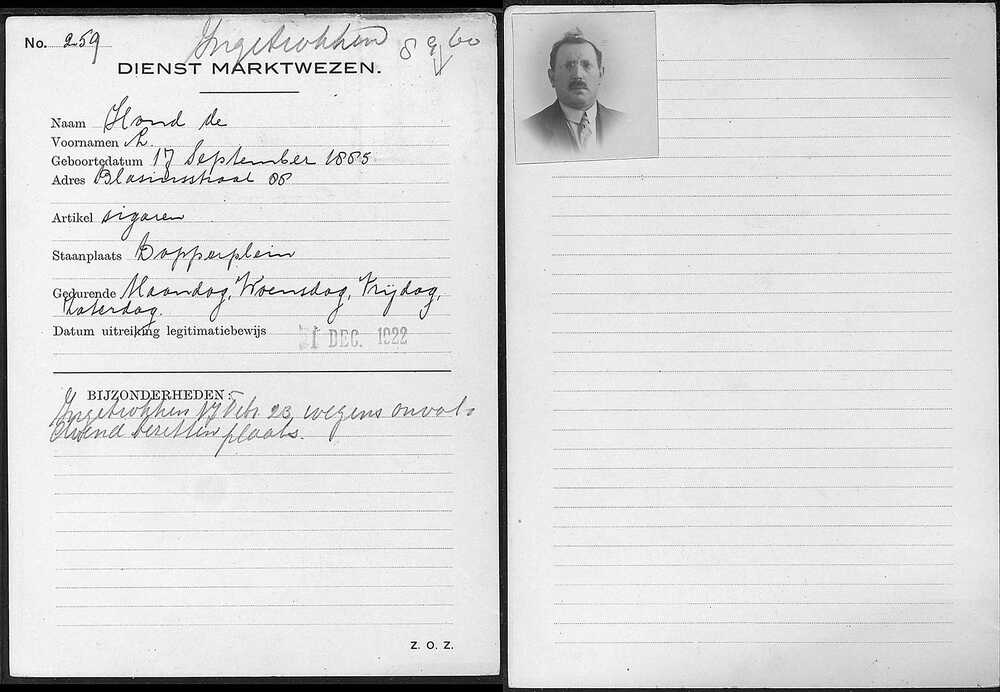 No. 259 Ingetrokken
DIENST MARKTWEZEN.
Naam Hond de
Voornamen
Geboortedatum 17 September 1885
Adres Blasiusstraat 88
Artikel sigaren
Staanplaats Dapperplein
Gedurende Maandag, Woensdag, Vrijdag,
Zaterdag.
Datum uitreiking legitimatiebewijs 1 DEC. 1922
BIJZONDERHEDEN:
Ingetrokken 17 Febr 23 wegens onvol-
doend bezetten plaats.
Z. O. Z.